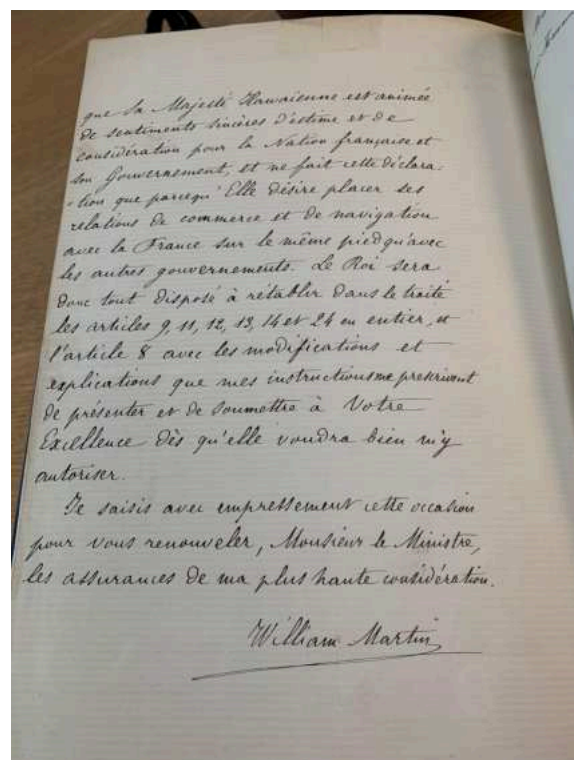 que Sa Majesté Hawaïenne est animée
de sentiments sincères d'estime et de
considération pour la Nation française et
son Gouvernement, et ne fait cette déclara-
-tion que parcequ'Elle désire placer ses
relations de commerce et de navigation
avec la France sur le même pied qu'avec
les autres gouvernements. Le Roi sera
donc tout disposé à rétablir dans le traité
les articles 9, 11, 12, 13, 14 et 24 en entier, et
l'article 8 avec les modifications et
explications que mes instructions me prescrivent
de présenter et de soumettre à Votre
Excellence dès qu'elle voudra bien m'y
autoriser.
Je saisis avec empressement cette occasion
pour vous renouveler, Monsieur le Ministre,
les assurances de ma plus haute considération.
William Martin